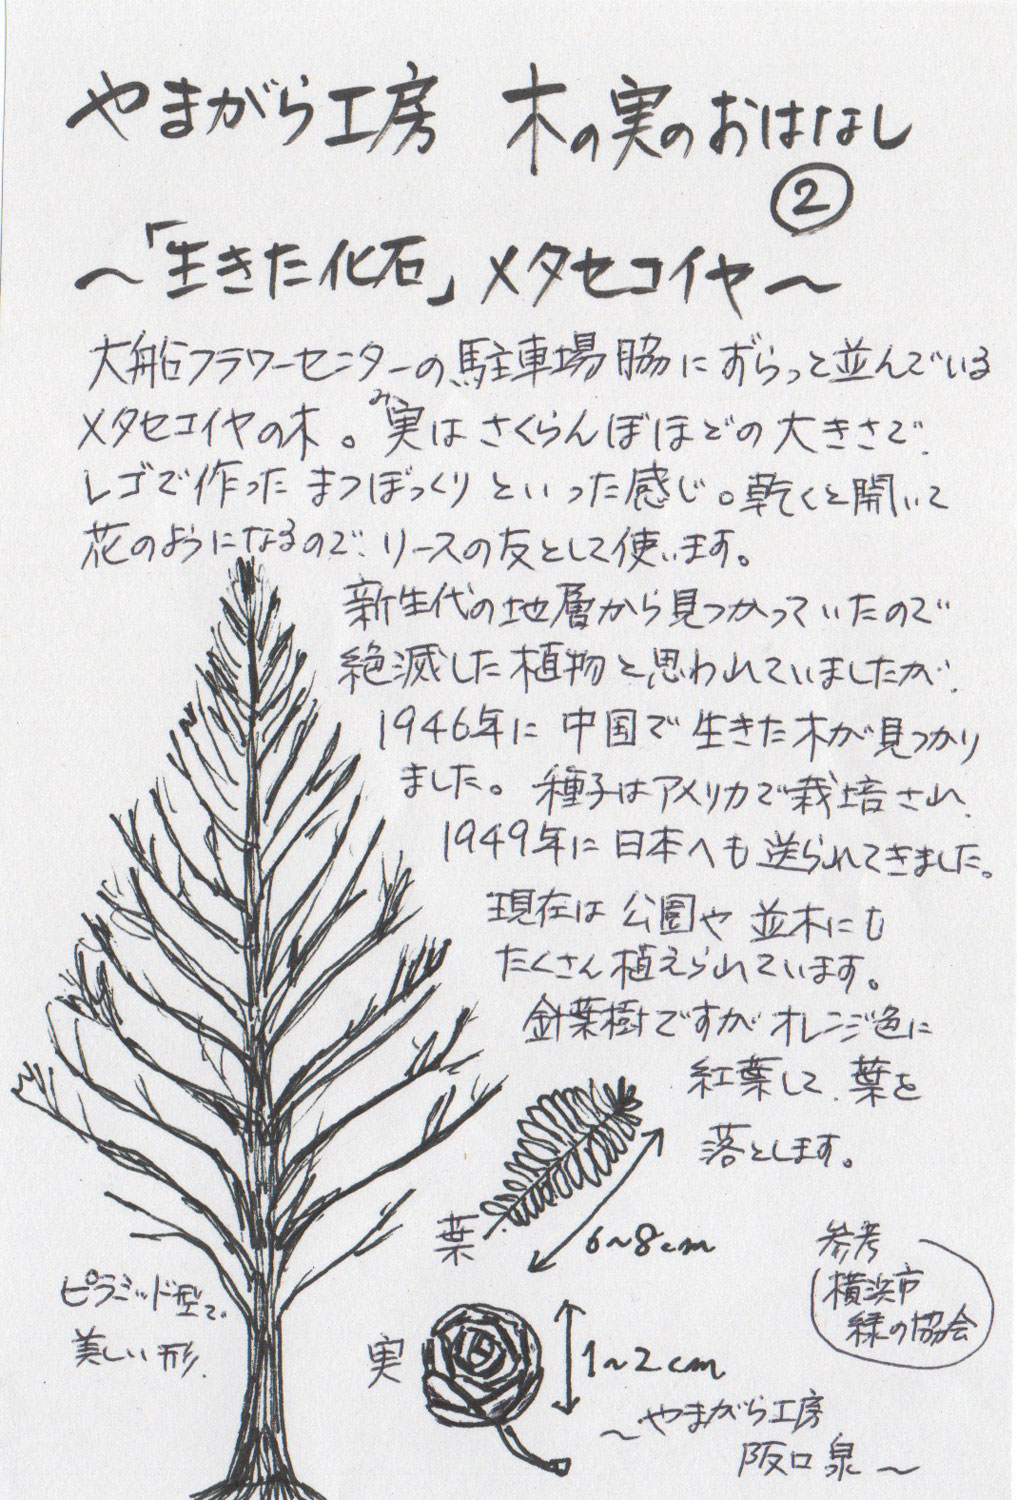 やまがら工房 木の実のおはなし
②
〜「生きた化石」メタセコイヤ〜
大船フラワーセンターの駐車場脇にずらっと並んでいる
メタセコイヤの木。実はさくらんぼほどの大きさで、
み
レゴで作ったまつぼっくりといった感じ。乾くと開いて
花のようになるので、リースの友として使います。
新生代の地層から見つかっていたので
絶滅した植物と思われていましたが、
1946年に中国で生きた木が見つかり
ました。種子はアメリカで栽培され、
1949年に日本へも送られてきました。
現在は公園や並木にも
たくさん植えられています。
針葉樹ですがオレンジ色に
紅葉して、葉を
落とします。
葉
6〜8cm
ピラミッド型で、
美しい形。
実
1〜2cm
参考
横浜市
緑の協会
〜やまがら工房
阪口泉〜